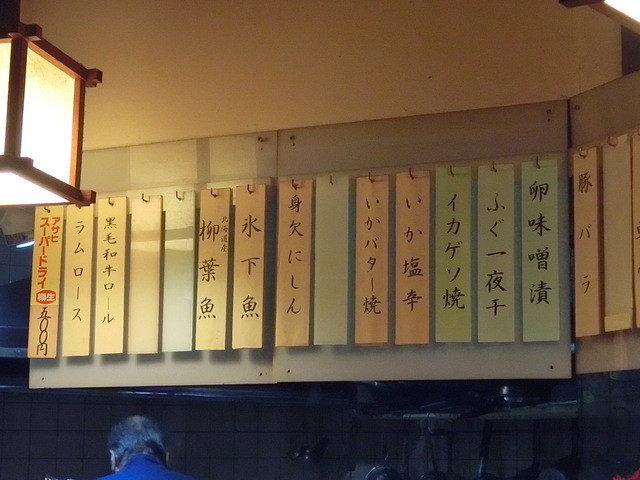 豚バラ
卵味噌漬
ふぐ一夜干
イカゲソ焼
いか塩辛
いかバター焼
身欠にしん
氷下魚
北海道産
柳葉魚
黒毛和牛ロール
ラムロース
アサヒ
スーパードライ
樽生
五〇〇円